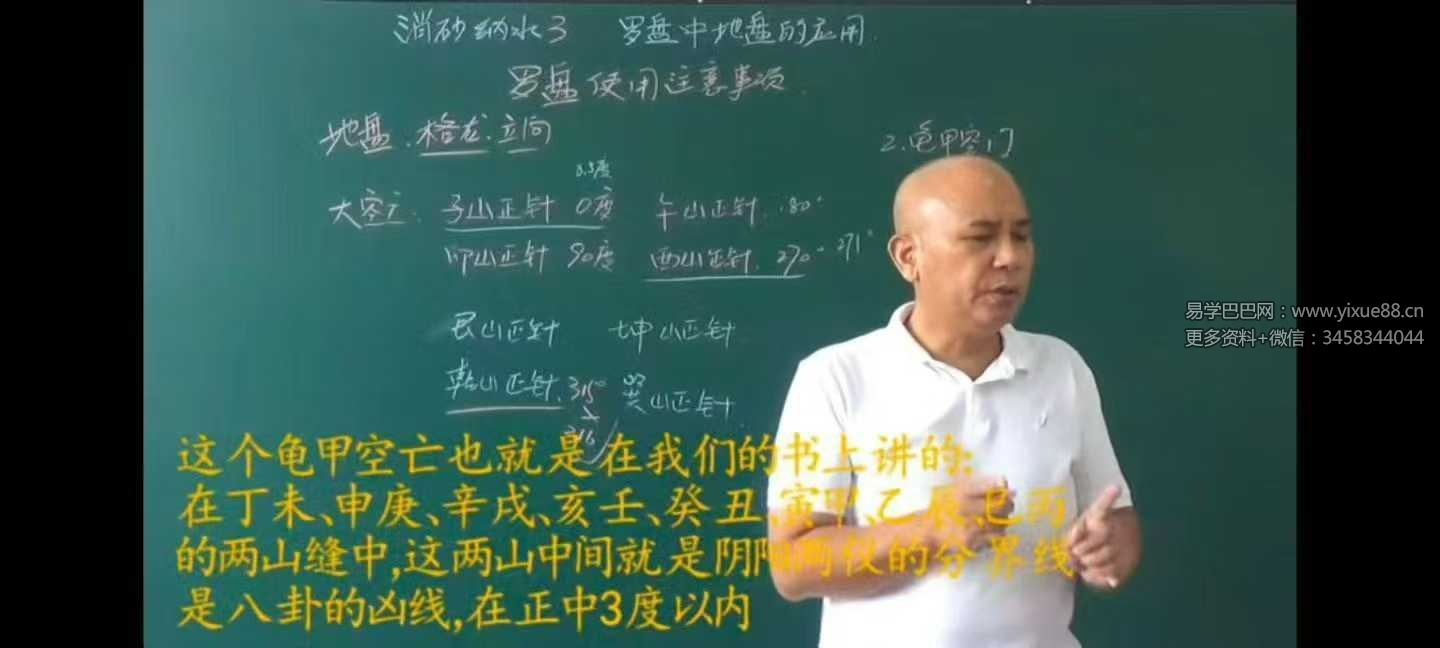 消砂纳水3 罗盘中地盘的应用.
罗盘使用注意事项.
地盘.格龙.立向
2.龟甲空亡
3.5度
大空亡. 子山正针 0度 午山正针.180°
卯山正针 90度 酉山正针.270°-271°
艮山正针 坤山正针
乾山正针.315° 巽山正针.
316
这个龟甲空亡也就是在我们的书上讲的:
在丁未、申庚、辛戌、亥壬、癸丑、寅甲、乙辰、巳丙
的两山缝中,这两山中间就是阴阳两仪的分界线
是八卦的凶线,在正中3度以内
易学巴巴网:www.yixue88.cn
更多资料+微信:3458344044